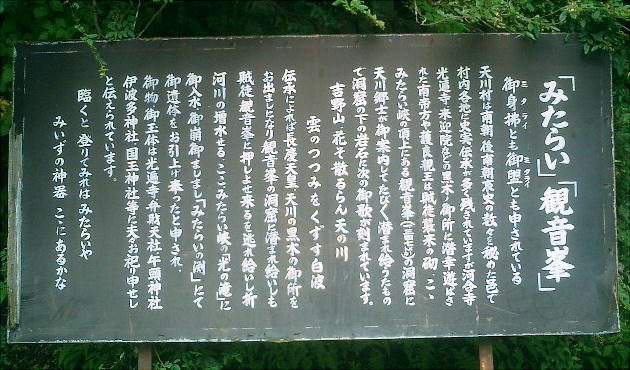 「みたらい」「観音峯」
ミタライ ミタライ
御身拂とも御盥とも申されている
天川村は南朝後南朝哀史の数々を秘めた邑で
村内各地に史実、伝承が多く残されていますが河合寺
光遍寺、来迎院などの黒木の御所に潜幸遊ばさ
れた南帝方や護良親王は賊徒襲来の砌、ここ
みたらい峡の頂上にある観音峯の洞窟に
天川郷士が御案内してたびたび潜まれ給うたもの
で洞窟の下の岩石に次の御歌が刻まれています。
吉野山 花ぞ散るらん 天の川
雲のつつみをくずす白波
伝承によれば長慶天皇、天川の黒木の御所を
お出ましになり観音峯の洞窟に潜まれ給いしも
賊徒、観音峯に押しよせ来るを逃れ給いし折
河川の増水せる、ここみたらい峡の「光の滝」に
御入水、御崩御ましまし「みたらいの渕」とて
御遺体をお引上げ奉ったと申され、
御物、御玉体は光遍寺、弁財天社、午頭神社
伊波多神社、国王神社等に夫々お祀り申せし
と伝えられています。
臨くと 登りてみれば みたらいや
みいずの神器 ここにあるかな